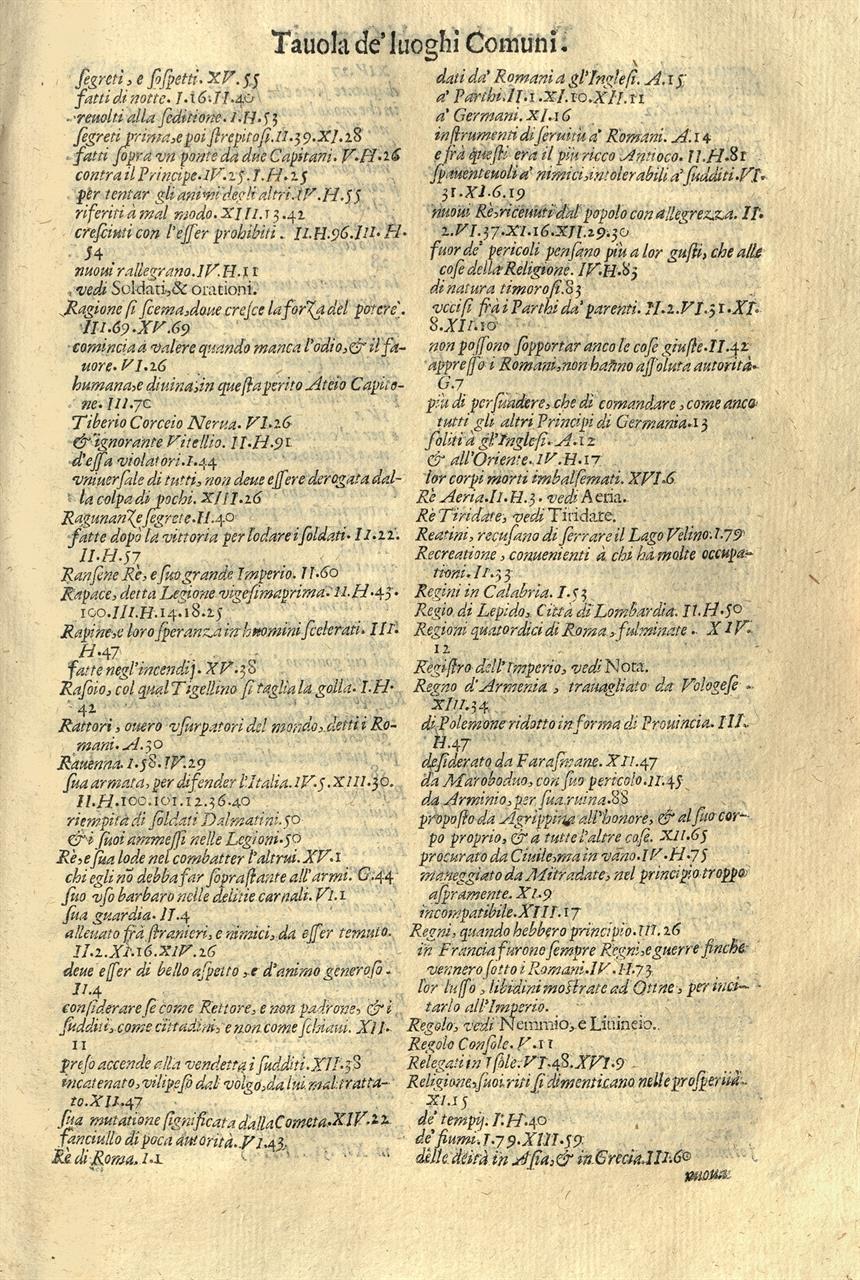 Tauola de' luoghi Comuni.
segreti, e sospetti. XV.55
fatti di notte. I.16.II.40
reuolti alla seditione. I.H.53
segreti prima, e poi strepitosi. II.39.XI.28
fatti sopra vn ponte da due Capitani. V.H.26
contra il Principe. IV.25.I.H.25
per tentar gli animi degli altri. IV.H.55
riferiti à mal modo. XIII.13.42
cresciuti con l'esser prohibiti. II.H.96.III.H.
54
nuoui rallegrano. IV.H.11
vedi Soldati, & orationi.
Ragione si scema, doue cresce la forza del potere.
III.69.XV.69
comincia à valere quando manca l'odio, & il fa-
uore. VI.26
humana, e diuina, in questa perito Ateio Capito-
ne. III.70
Tiberio Corceio Nerua. VI.26
& ignorante Vitellio. II.H.91
d'essa violatori. I.44
vniuersale di tutti, non deue essere derogata dal-
la colpa di pochi. XIII.26
Ragunanze segrete. II.40
fatte dopò la vittoria per lodare i soldati. II.22.
II.H.57
Ransene Rè, e suo grande Imperio. II.60
Rapace, detta Legione vigesimaprima. II.H.43.
100.III.H.14.18.25
Rapine, e loro speranza in huomini scelerati. III.
H.47
fatte negl'incendij. XV.38
Rasoio, col qual Tigellino si taglia la golla. I.H.
42
Rattori, ouero vsurpatori del mondo, detti i Ro-
mani. A.30
Rauenna. I.58.IV.29
sua armata, per difender l'Italia. IV.5.XIII.30.
II.H.100.101.12.36.40
riempita di soldati Dalmatini. 50
& i suoi ammessi nelle Legioni. 50
Rè, e sua lode nel combatter l'altrui. XV.1
chi egli nō debba far soprastante all'armi. G.44
suo vso barbaro nelle delitie carnali. VI.1
sua guardia. II.4
alleuato frà stranieri, e nimici, da esser temuto.
II.2.XI.16.XIV.26
deue esser di bello aspetto, e d'animo generoso.
II.4
considerare se come Rettore, e non padrone, & i
sudditi, come cittadini, e non come schiaui. XII.
11
preso accende alla vendetta i sudditi. XII.38
incatenato, vilipeso dal volgo, da lui mal tratta-
to. XII.47
sua mutatione significata dalla Cometa. XIV.22
fanciullo di poca autorità. VI.43
Rè di Roma. I.1
dati da' Romani a gl'Inglesi. A.15
a' Parthi. II.1.XI.10.XII.11
a' Germani. XI.16
instrumenti di seruitù a' Romani. A.14
e frà questi era il più ricco Antioco. II.H.81
spauenteuoli a' nimici, intolerabili a' sudditi. VI.
31.XI.6.19
nuoui Rè, riceuuti dal popolo con allegrezza. II.
2.VI.37.XI.16.XII.29.30
fuor de' pericoli pensano più a lor gusti, che alle
cose della Religione. IV.H.83
di natura timorosi. 83
vccisi frà i Parthi da' parenti. II.2.VI.31.XI.
8.XII.10
non possono sopportar anco le cose giuste. II.42
appresso i Romani, non hanno assoluta autorità.
G.7
più di persuadere, che di comandare, come anco
tutti gli altri Principi di Germania. 13
soliti à gl'Inglesi. A.12
& all'Oriente. IV.H.17
lor corpi morti imbalsemati. XVI.6
Rè Aeria. II.H.3. vedi Aeria.
Rè Tiridate, vedi Tiridate.
Reatini, recusano di serrare il Lago Velino. I.79
Recreatione, conuenienti à chi hà molte occupa-
tioni. II.33
Regini in Calabria. I.53
Regio di Lepido, Città di Lombardia. II.H.50
Regioni quatordici di Roma, fulminate. XIV.
12
Registro dell'Imperio, vedi Nota.
Regno d'Armenia, trauagliato da Vologese.
XIII.34
di Polemone ridotto in forma di Prouincia. III.
H.47
desiderato da Farasmane. XII.47
da Maroboduo, con suo pericolo. II.45
da Arminio, per sua ruina. 88
proposto da Agrippina all'honore, & al suo cor-
po proprio, & a tutte l'altre cose. XII.65
procurato da Ciuile, ma in vano. IV.H.75
maneggiato da Mitradate, nel principio troppo
aspramente. XI.9
incompatibile. XIII.17
Regni, quando hebbero principio. III.26
in Francia furono sempre Regni, e guerre finche
vennero sotto i Romani. IV.H.73
lor lusso, libidini mostrate ad Ottne, per inci-
tarlo all'Imperio.
Regolo, vedi Nemmio, e Liuineio.
Regolo Console. V.11
Relegati in Isole. VI.48.XVI.9
Religione, suoi riti si dimenticano nelle prosperità.
XI.15
de' tempij. I.H.40
de' fiumi. I.79.XIII.59
delle deità in Asia, & in Grecia. III.60
nuoua